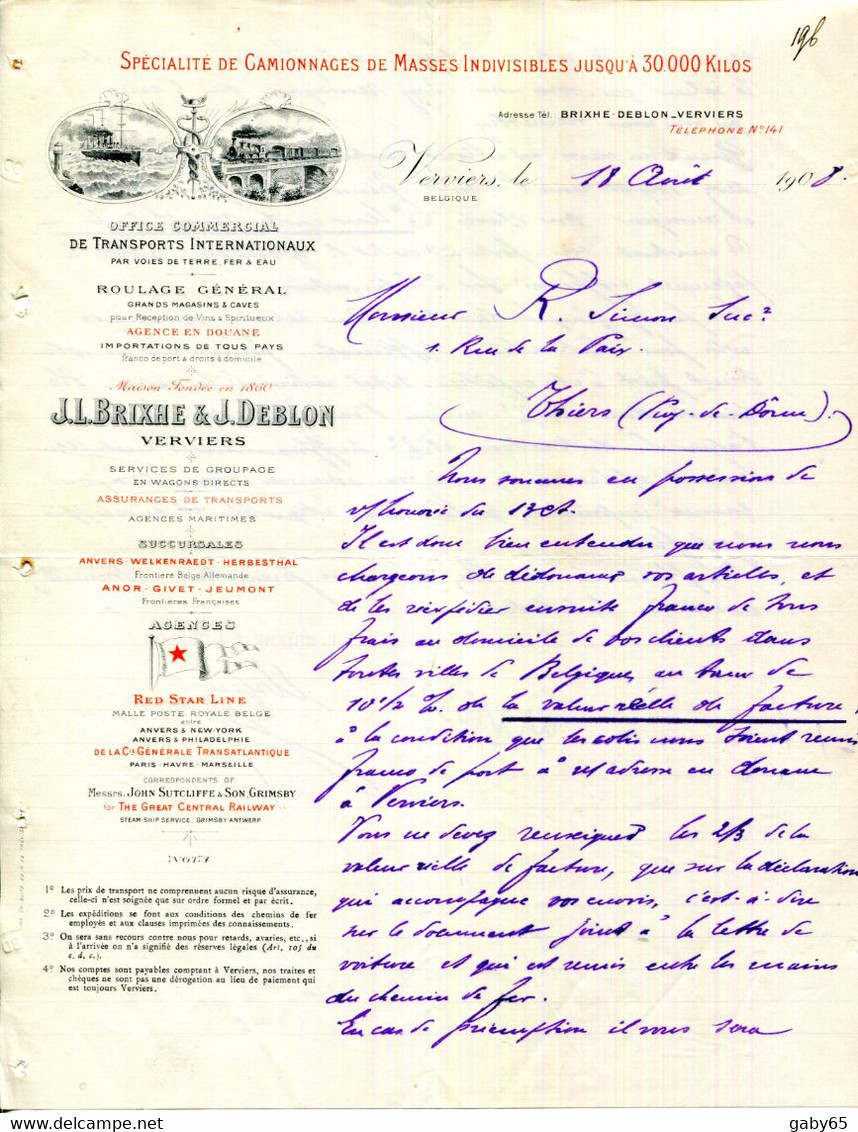 196
SPÉCIALITÉ DE CAMIONNAGES DE MASSES INDIVISIBLES JUSQU'À 30.000 KILOS
Adresse Tél. BRIXHE-DEBLON_VERVIERS
TÉLÉPHONE No 141
Verviers, le 18 Août 1908.
BELGIQUE
OFFICE COMMERCIAL
DE TRANSPORTS INTERNATIONAUX
PAR VOIES DE TERRE, FER & EAU
ROULAGE GÉNÉRAL
GRANDS MAGASINS & CAVES
pour Réception de Vins & Spiritueux
AGENCE EN DOUANE
IMPORTATIONS DE TOUS PAYS
franco de port & droits à domicile
Maison Fondée en 1860
J.L.BRIXHE & J.DEBLON
VERVIERS
SERVICES DE GROUPAGE
EN WAGONS DIRECTS
ASSURANCES DE TRANSPORTS
AGENCES MARITIMES
SUCCURSALES
ANVERS-WELKENRAEDT-HERBESTHAL
Frontière Belge-Allemande
ANOR-GIVET-JEUMONT
Frontières Françaises
AGENCES
RED STAR LINE
MALLE POSTE ROYALE BELGE
entre
ANVERS & NEW-YORK
ANVERS & PHILADELPHIE
DE LA Cie GÉNÉRALE TRANSATLANTIQUE
PARIS-HAVRE-MARSEILLE
CORRESPONDENTS OF
Messrs. JOHN SUTCLIFFE & SON, GRIMSBY
for THE GREAT CENTRAL RAILWAY
STEAM-SHIP SERVICE: GRIMSBY-ANTWERP
1o Les prix de transport ne comprennent aucun risque d'assurance,
celle-ci n'est soignée que sur ordre formel et par écrit.
2o Les expéditions se font aux conditions des chemins de fer
employés et aux clauses imprimées des connaissements.
3o On sera sans recours contre nous pour retards, avaries, etc., si
à l'arrivée on n'a signifié des réserves légales (Art. 105 du
c. d. c.).
4o Nos comptes sont payables comptant à Verviers, nos traites et
chèques ne sont pas une dérogation au lieu de paiement qui
est toujours Verviers.
Monsieur R. Simon Sucr
1. Rue de la Paix.
Thiers (Puy-de-Dôme).
Nous sommes en possession de
v/honorée du 13 ct.
Il est donc bien entendu que nous nous
chargeons de dédouaner vos articles, et
de les réexpédier ensuite franco de tous
frais au domicile de vos clients dans
toutes villes de Belgique, au taux de
10 1/2 %. de la valeur réelle de facture,
à la condition que les colis nous soient remis
franco de port à n/adresse en douane
à Verviers.
Vous ne devez renseigner les 2/3 de la
valeur réelle de facture, que sur la déclaration
qui accompagne vos envois, c'est-à-dire
sur le document joint à la lettre de
voiture et qui est remis entre les mains
du chemin de fer.
En cas de préemption il vous sera
gaby65